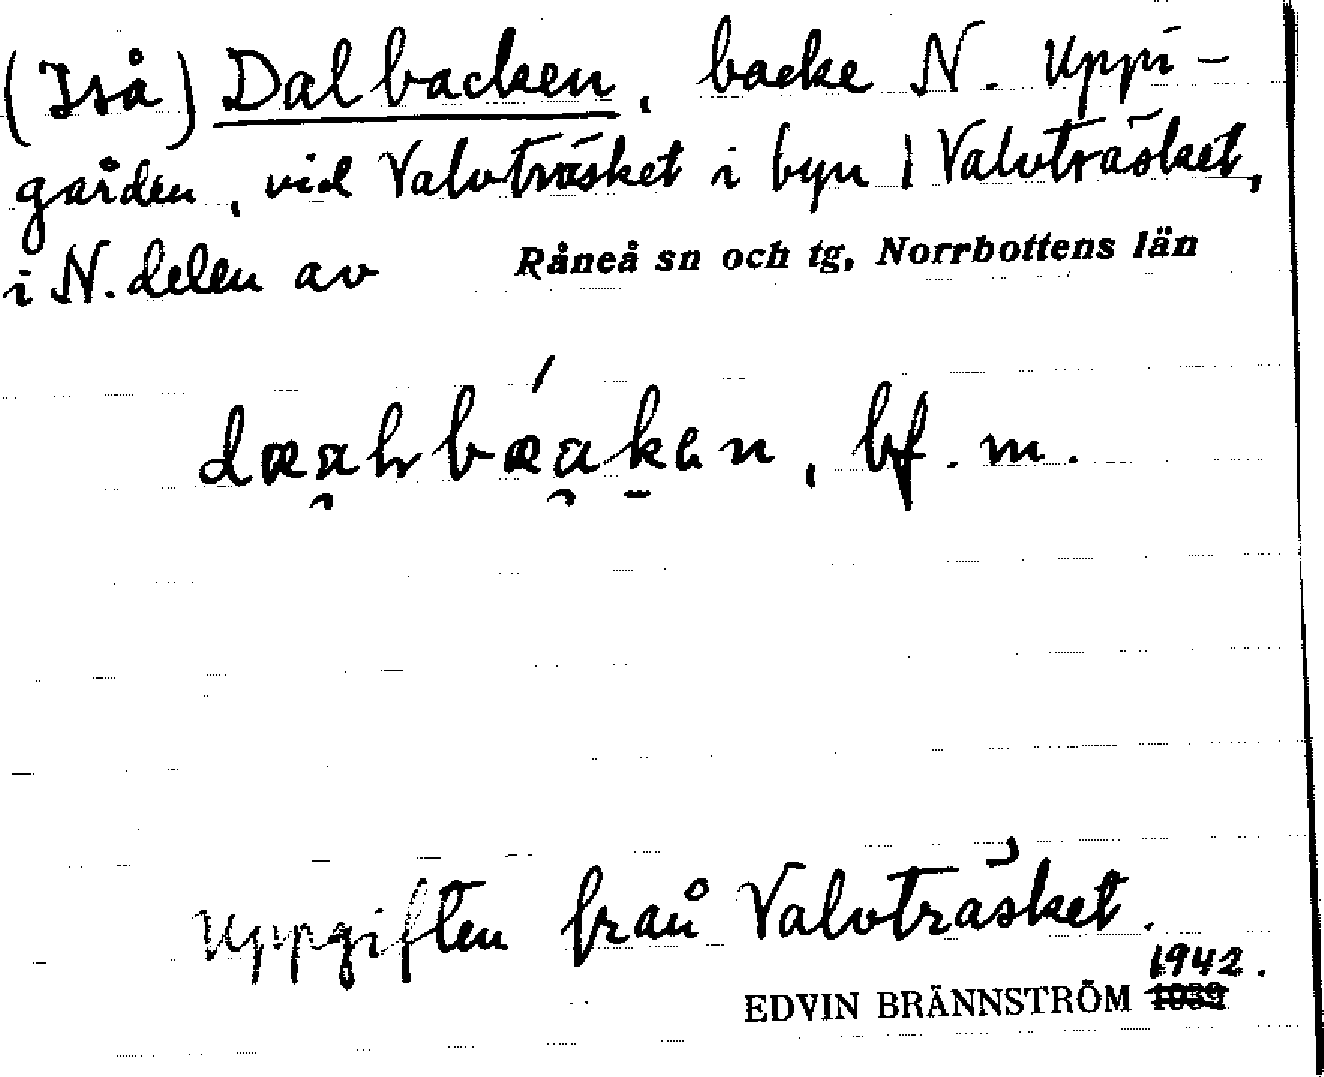 (Iså) Dalbacken, backe N. Uppi-
gården, vid Valvträsket i byn 1 Valvträsket,
i N. delen av Råneå sn och tg, Norrbottens län
bf. m.
Uppgiften från Valvträsket.
1942.
EDVIN BRÄNNSTRÖM 1939